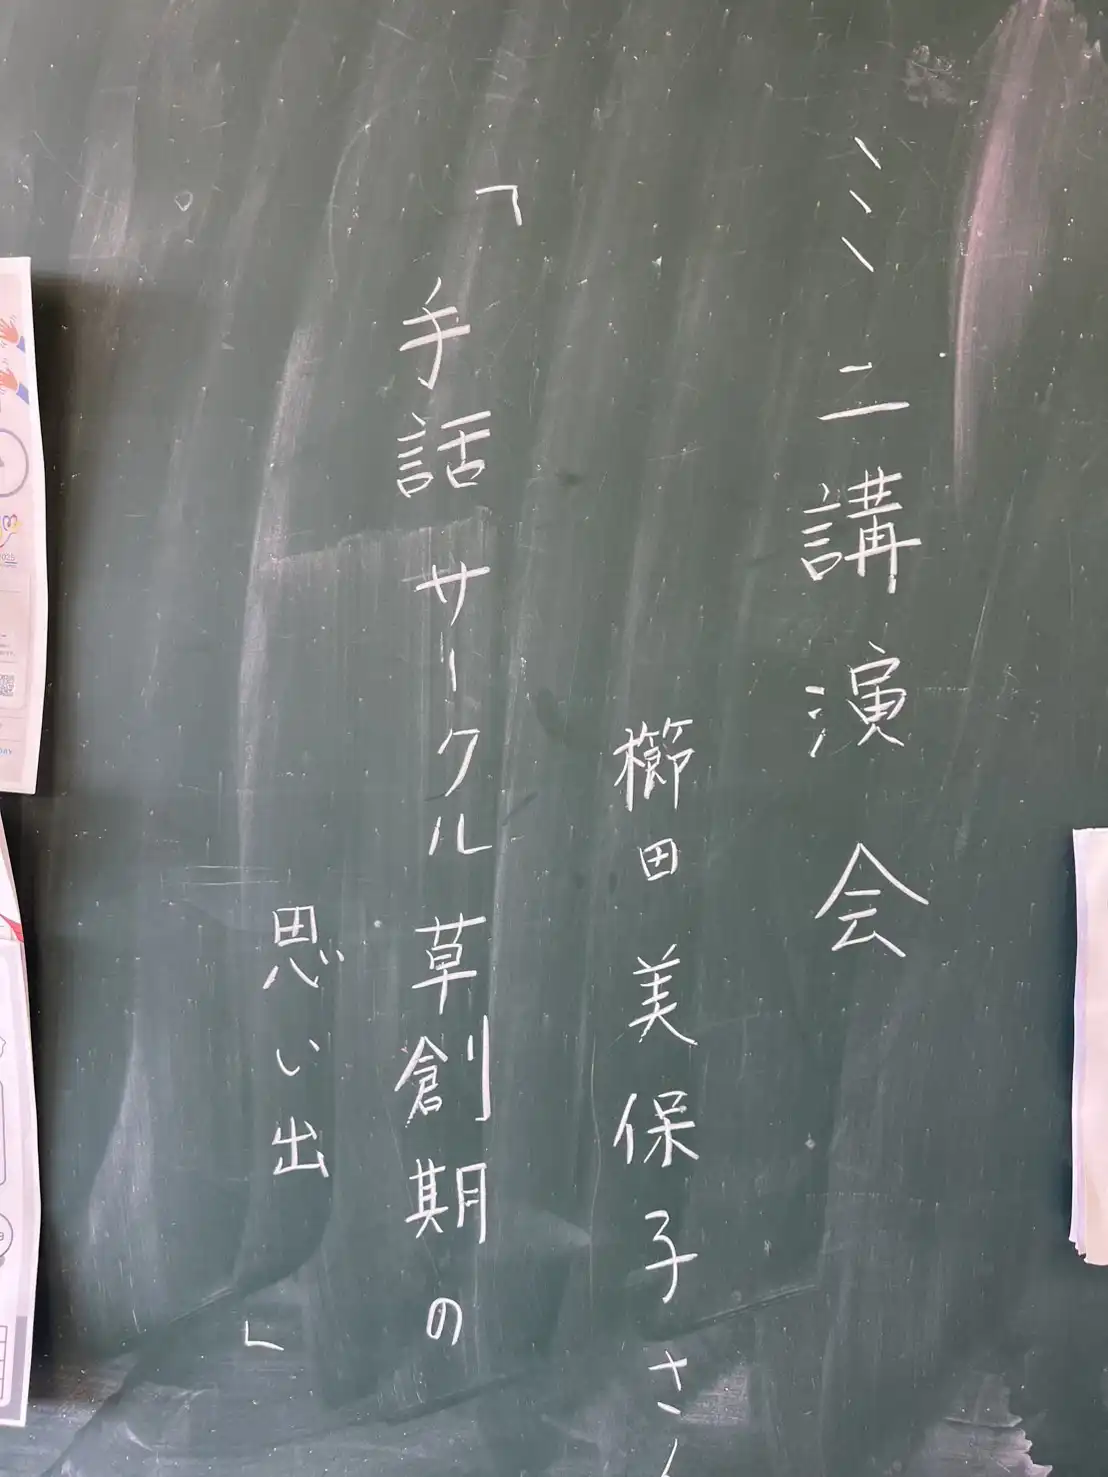 ミニ講演会
櫛田美保子さん
「手話サークル草創期の
思い出」
2025